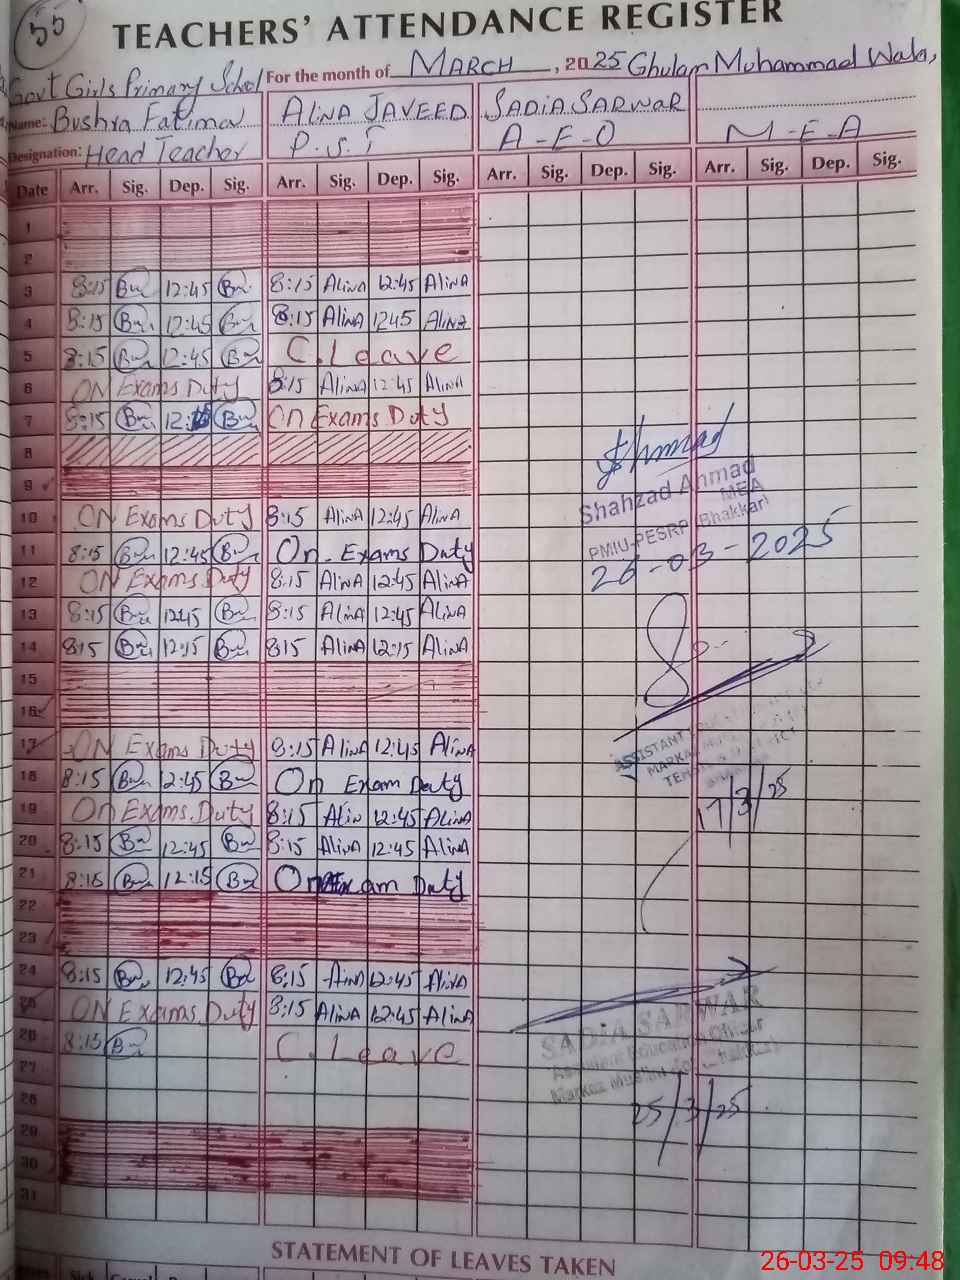 55
TEACHERS' ATTENDANCE REGISTER
Govt Girls Primary School For the month of MARCH, 2025 Ghulam Muhammad Wala,
Name: Bushra Fatima ALINA JAVEED SADIA SARWAR
Designation: Head Teacher P.S.T A-E-O M-E-A
Date Arr. Sig. Dep. Sig. Arr. Sig. Dep. Sig. Arr. Sig. Dep. Sig. Arr. Sig. Dep. Sig.
1
2
3 8:15 12:45 8:15 AlinA 12:45 AlinA
4 8:15 12:45 8:15 AlinA 1245 AlinA
5 8:15 12:45 C.Leave
6 ON Exams Duty 8:15 AlinA 12:45 AlinA
7 8:15 On Exams Duty
8
9
10 ON Exams Duty 8:15 AlinA 12:45 AlinA
11 8:15 12:45 On-Exams Duty
12 ON Exams Duty 8:15 AlinA 12:45 AlinA
13 8:15 1245 8:15 AlinA 12:45 AlinA
14 815 12:15 815 AlinA 12:15 AlinA
15
16
17 ON Exams Duty 8:15 AlinA 12:45 AlinA
18 8:15 12:45 On Exam Duty
19 On Exams Duty 8:15 Alin 12:45 AlinA
20 8:15 12:45 8:15 AlinA 12:45 AlinA
21 8:15 12:15 On Exam Duty
22
23
24 8:15 12:45 8:15 AlinA 12:45 AlinA
25 ON Exams Duty 8:15 AlinA 12:45 AlinA
26 8:15 C.Leave
27
28
29
30
31
Shahzad Ahmad
MEA
PMIU-PESRP (Bhakkar)
26-03-2025
ASSISTANT
MARKAZ
17/3/25
SADIA SARWAR
Assistant Education Officer
Markaz
25/3/25
STATEMENT OF LEAVES TAKEN
26-03-25 09:48